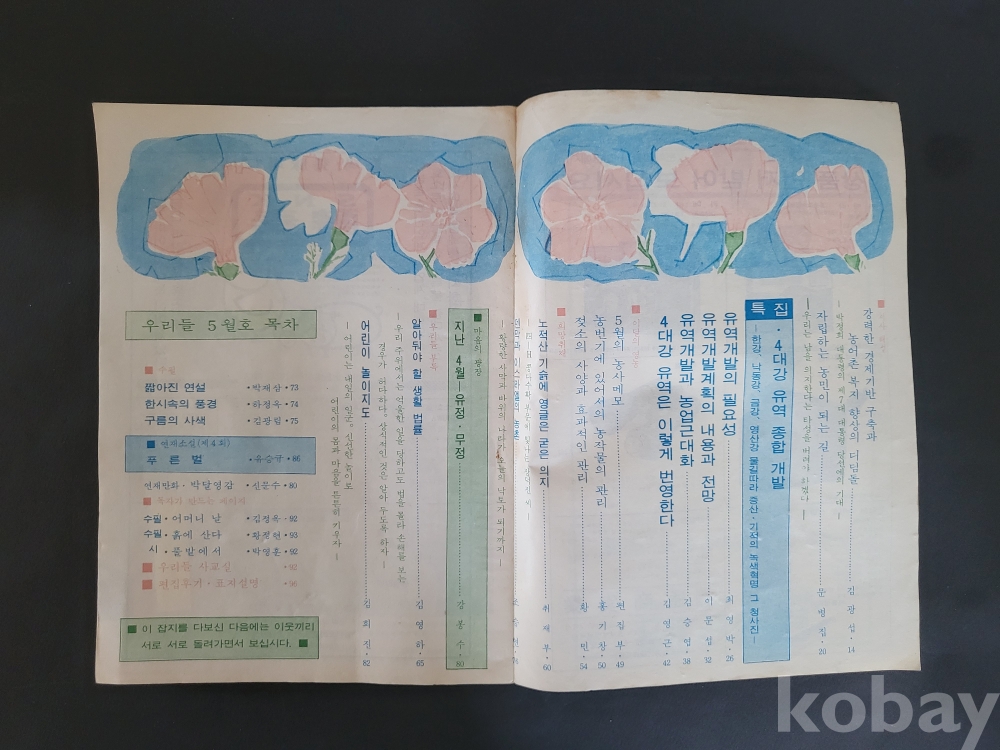 강력한 경제기반 구축과
농어촌 복지 향상의 디딤돌 김광섭·14
박정희 대통령의 제7대 대통령 당선에의 기대
자립하는 농민이 되는 길 문병집·20
우리는 남을 의지한다는 타성을 버려야 하겠다
특집·4대강 유역 종합 개발
─한강, 낙동강, 금강, 영산강 물길따라 증산·기적의 녹색혁명 그 청사진─
유역개발의 필요성 최영박·26
유역개발계획의 내용과 전망 이문섭·32
유역개발과 농업근대화 김승영·38
4대강 유역은 이렇게 번영한다 김영근·42
5월의 농사메모 편집부·49
농번기에 있어서의 농작물의 관리 홍기창·50
젖소의 사양과 효과적인 관리 황민·54
노적산 기슭에 영글은 굳은 의지 취재부·60
─황량한 사막과 바위의 나라가 오늘의 낙토가 되기까지─
■ 마음의 광장
지난 4월─유정·무정 강봉수·80
알아둬야 할 생활 법률 김영하·65
─우리 주위에서는 억울한 일을 당하고도 법을 몰라 손해를 보는
경우가 허다하다. 상식적인 것은 알아 두도록 하자─
어린이 놀이지도 김희진·82
─어린이는 내일의 일꾼. 신나는 놀이로
어린이의 몸과 마음을 튼튼히 키우자─
우리들 5월호 목차
■ 수필
짧아진 연설 ·박재삼·73
한시속의 풍경 ·하정옥·74
구름의 사색 ·김광림·75
■ 연재소설(제4회)
푸른벌 ·유승규·86
연재만화·박달영감 ·신문수·80
■ 독자가 만드는 페이지
수필·어머니 날 ·김정옥·92
수필·흙에 산다 ·황정현·93
시·풀밭에서 ·박영훈·92
■ 우리들 사교실 ·92
■ 편집후기·표지설명 ·96
■ 이 잡지를 다보신 다음에는 이웃끼리
서로 서로 돌려가면서 보십시다. ■
kobay